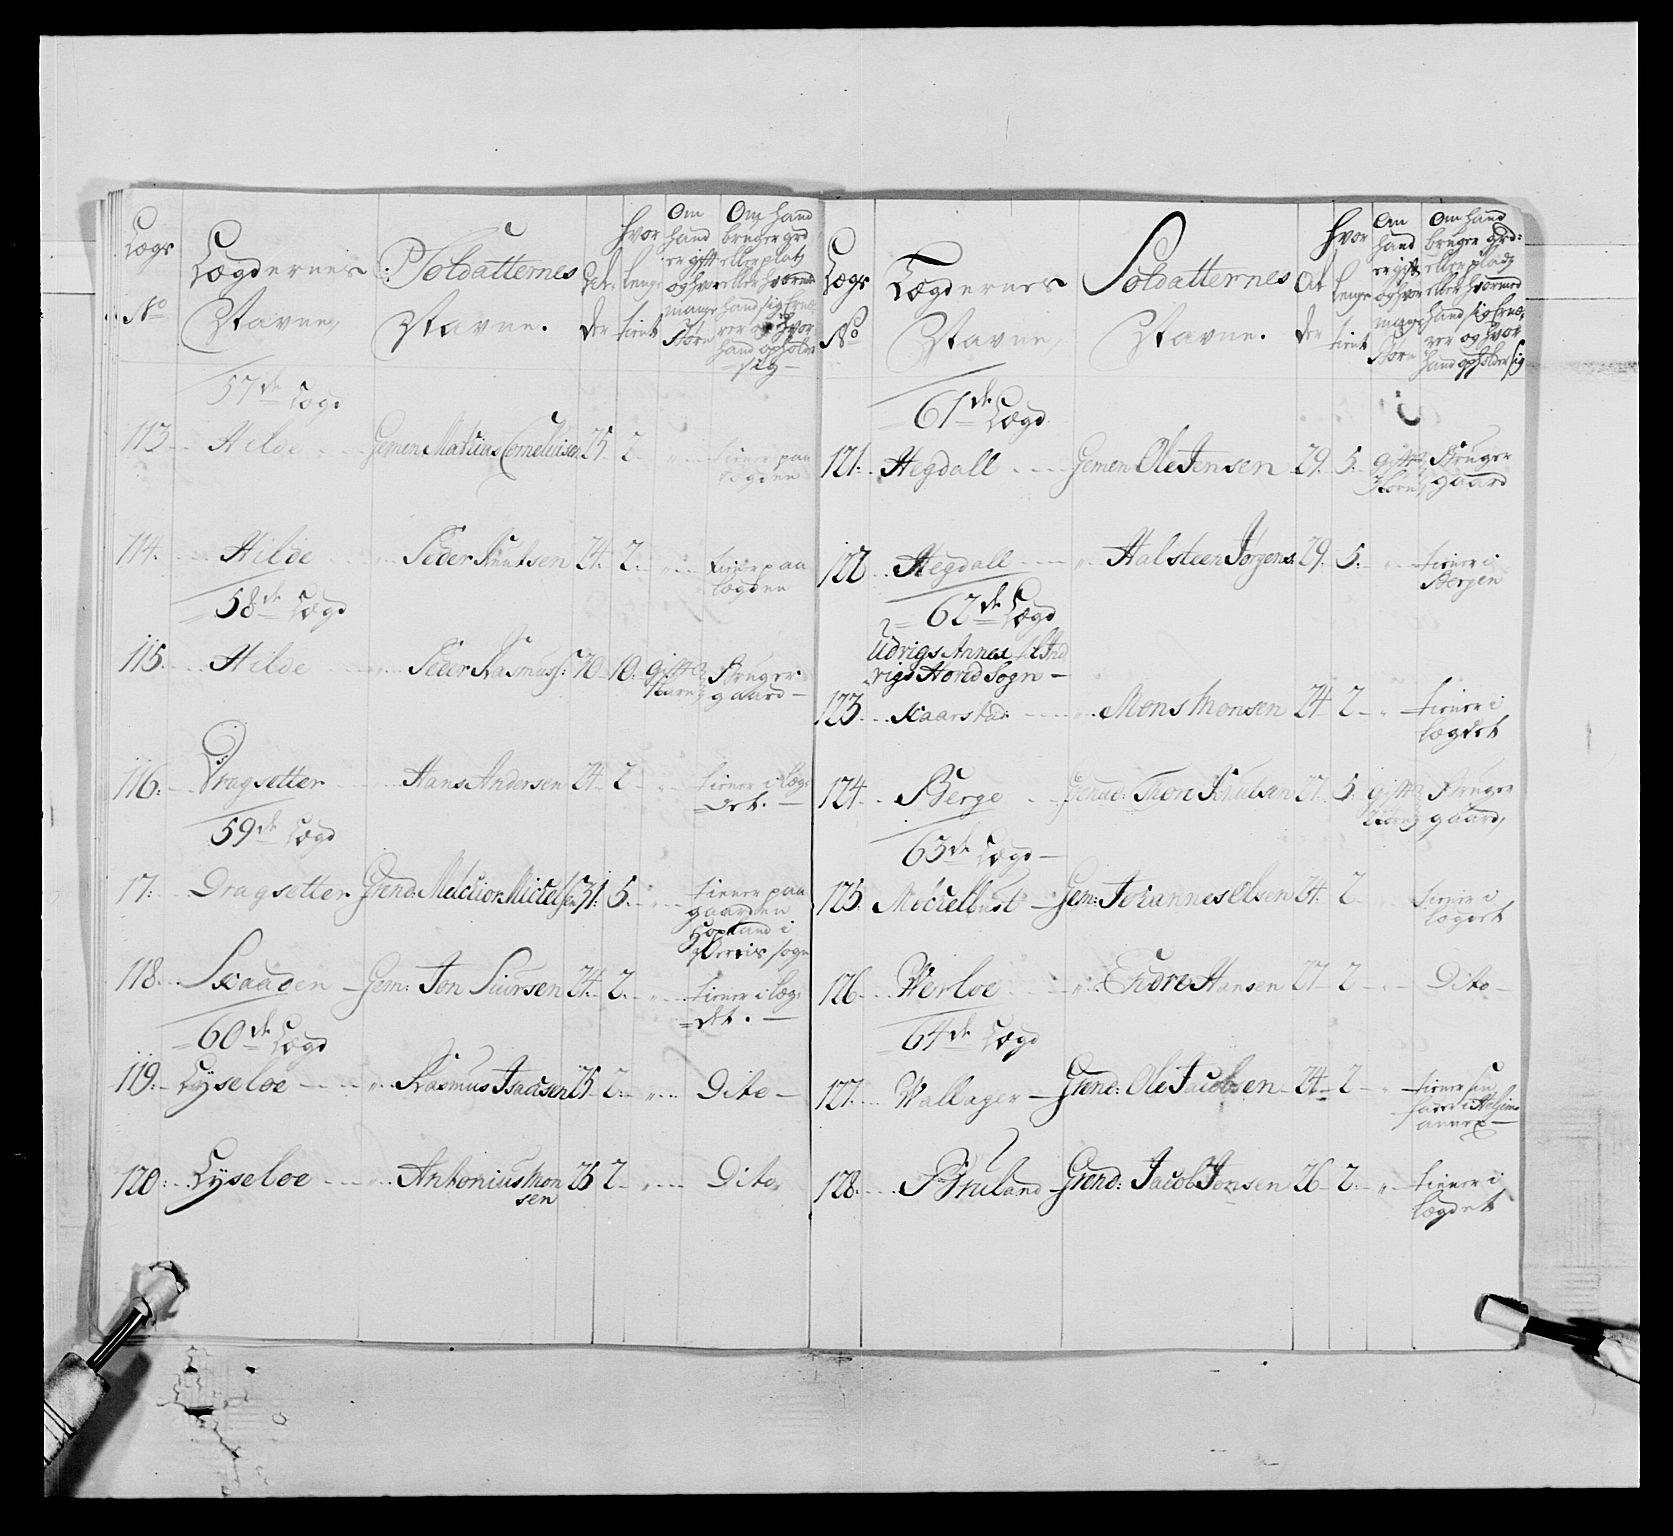 Lægs No
Lægdernes Navne,
Soldatternes Navne.
Al-der
hvor lenge tient
Om hand er gift og hvor mange børn
Om hand bruger grd eller plads eller hvormed hand sig ernærer og hvor hand opholder sig
57de Lægd
113. Hilde Gemen Matias Corneliusen 25 2 tiener paa lægden
114. Hilde " Peder Knutsen 24. 2. " tiener paa lægden
58de Lægd
115. Hilde " Peder Rasmuss: 70 10. gift 2 børn Bruger gaard
116. Dragsetter Hans Andersen 24 2 " tiener i læg-det.
59de Lægd
17: Dragsetter Grend: Melchior Michelsen 31. 5. " tiener paa gaarden Hopland i sogn
118. Skaaden Gem: Jon Siursen 24. 2. " tiener i læg-det.
60de Lægd
119. Lyseloe " Rasmus Isacsen 25 2. " Dito
120. Lyseloe " Antonius Monsen 26 2 " Dito
Lægs No
Lægdernes Navne,
Soldatternes Navne.
Al der
hvor lenge tient
Om hand er gift og hvor mange børn
Om hand bruger grd: eller plads eller hvormed hand sig ernærer og hvor hand opholder sig
61de Lægd
121. Hegdall Gemen Ole Jensen 29. 5. gift børn Bruger gaard
122 Hegdall " Halsteen Jørgens. 29. 5. " tiener i Bergen
62de Lægd
Udrigs Annex til Ind
rigs Hored Sogn
123 Kaarstad " Mons Monsen 24 2 " tiener i lægdet
124 Berge Thore Knutsen 27 5 gift børn Bruger gaard,
63de Lægd
125. Mechelbust Gem: Johannes Olsen 24. 2 tiener i lægdet
126 Werloe " Endre Hansen 27 2 " Dito
64de Lægd
127. Wallager Grend: Ole Jacobsen 24 2 " tiener sin fader i annex
128. Bruland Grend: Jacob Jonsen 26 2. " tiener i lægdet